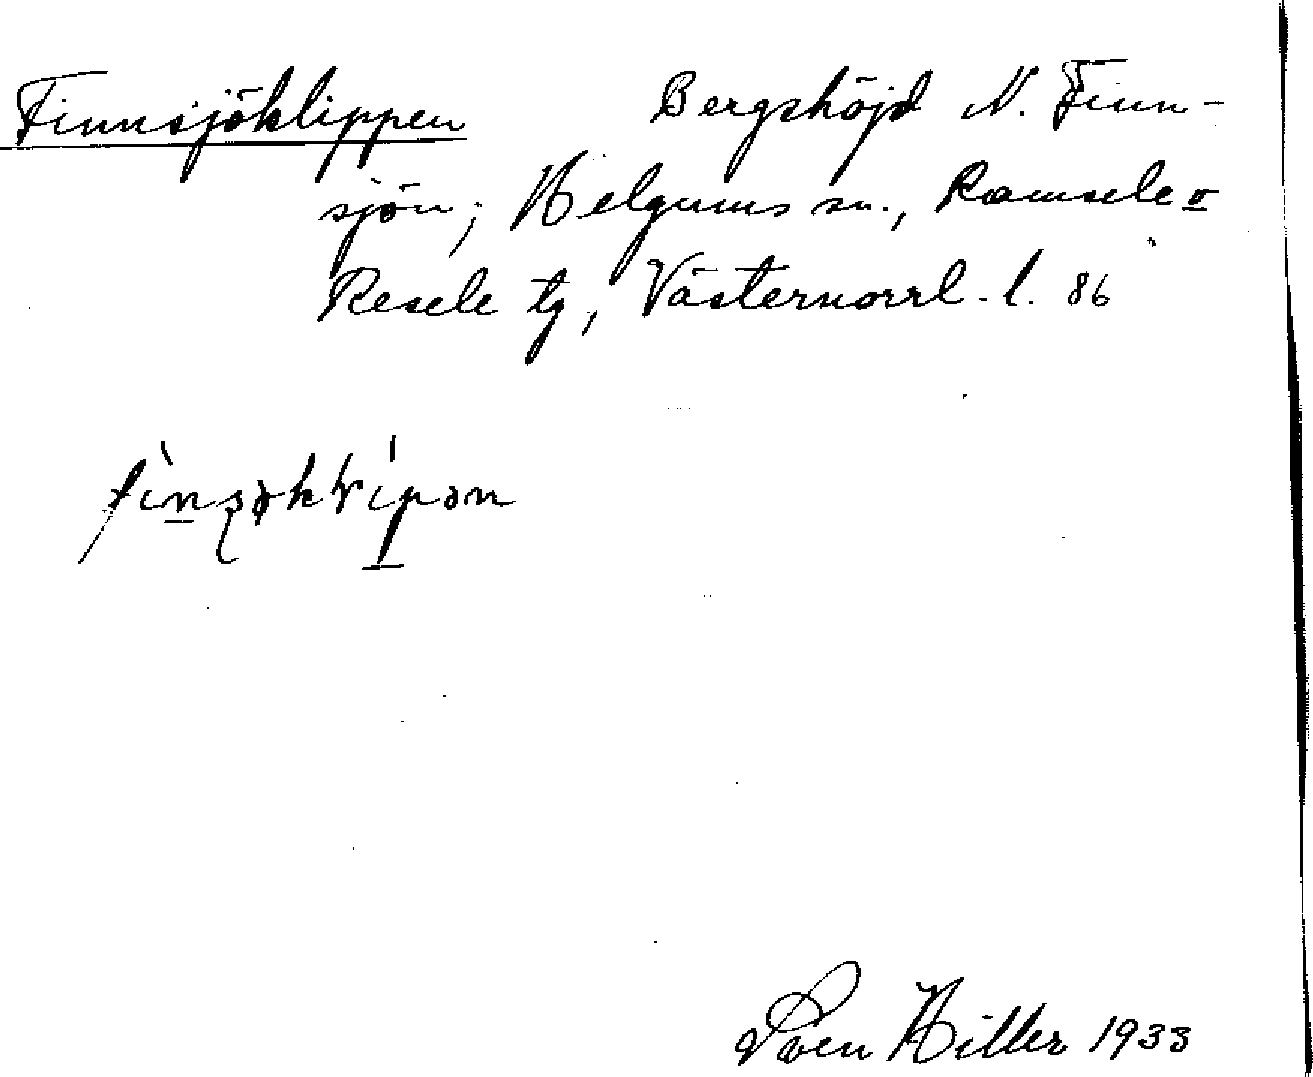 Finnsjöklippen Bergshöjd N. Finn-
sjön; Helgums sn., Ramsele o
Resele tg, Västernorrl. l. 86
Sven Hiller 1933